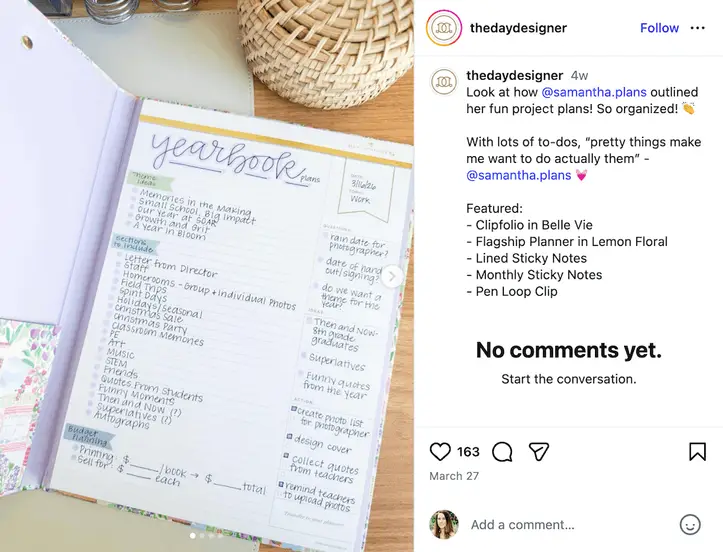 yearbook plans
DATE:
3/16/26
Work
Theme Ideas
Memories in the Making
Small School, Big Impact
Our Year at SOAR
Growth and Grit
A Year in Bloom
Sections to Include
Letter from Director
Staff
Homerooms - Group + Individual Photos
Field Trips
Spirit Days
Holidays/Seasonal
Christmas Sale
Christmas Party
Classroom Memories
PE
Art
Music
STEM
Friends
Quotes From Students
Funny Moments
Then and Now (?)
Superlatives (?)
Autographs
Budget Planning
Printing: $ ____/book → $ ____ total
Sell for: $ ____ each
rain date for
photographer?
date of hand
out/signing?
do we want a
theme for the
year?
Then and Now-
8th grade
graduates
Superlatives
Funny quotes
from the year
create photo list
for photographer
design cover
collect quotes
from teachers
remind teachers
to upload photos
thedaydesigner
Follow
thedaydesigner 4w
Look at how @samantha.plans outlined
her fun project plans! So organized! 👏
With lots of to-dos, “pretty things make
me want to do actually them” -
@samantha.plans 💓
Featured:
- Clipfolio in Belle Vie
- Flagship Planner in Lemon Floral
- Lined Sticky Notes
- Monthly Sticky Notes
- Pen Loop Clip
No comments yet.
Start the conversation.
163
March 27
Add a comment...